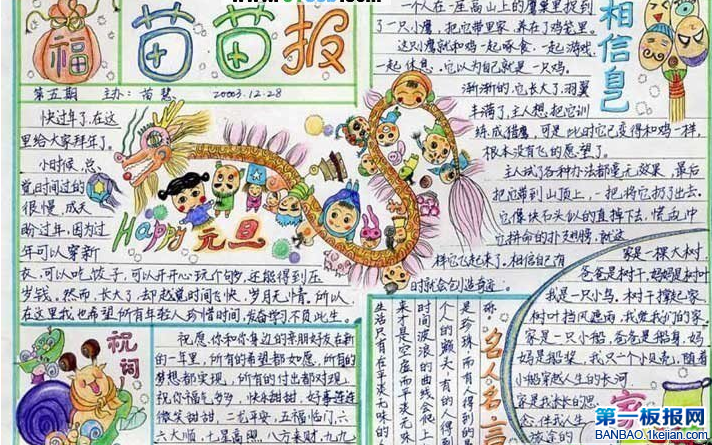 福
苗苗报
第五期 主办：苗慧 2003.12.28
快过年了,在这
里给大家拜年了。
小时候,总
觉时间过的
很慢,成天
盼过年,因为过
年可以穿新
衣,可以吃饺子,可以开开心玩个够,还能得到压
岁钱。然而,长大了,却越觉时间飞快,岁月无情,所以,
在这里我也希望所有年轻人珍惜时间,发奋学习不负此生。
Happy 元旦
一个人在一座高山上的鹰巢里捉到
了一只小鹰,把它带里家,养在了鸡笼里。
这只小鹰就和鸡一起啄食,一起游戏,
一起休息,它以为自己就是一只鸡。
渐渐的,它长大了,羽翼
丰满了,主人想把它训
练成猎鹰,可是此时它已变得和鸡一样,
根本没有飞的愿望了。
主人试了各种办法都毫无效果,最后
把它带到山顶上,一把将它扔了出去。
它像块石头似的直掉下去,慌乱中
它拼命的扑打翅膀,就这
样它飞起来了。相信自己有
时就会创造奇迹。
相信自己
祝词
祝愿你和你身边的亲朋好友在新
的一年里,所有的希望都如愿,所有的
梦想都实现,所有的付出都对现。
祝你福气多多,快乐甜甜,好事连连
微笑甜甜,二龙,五福临门,六
六大顺,七星高照,八方来财,九九
名人名言
是珍珠,而有的人得到的
个人的额头,有的人得
时间波浪的曲线会爬
来才是空虚而平淡无味
生活只有在平淡无味的
家是一棵大树。
爸爸是树干,妈妈是树叶
我是一只小鸟。树干撑起家,
树叶挡风遮雨,我我们的家。
家是一只小船,爸爸是船身,妈
妈是船桨,我只一个小贝壳,随着
小船穿越人生的长河。
家是我成长的
念,伴我人生
家
第一板报网
BANBAO.1kejian.com